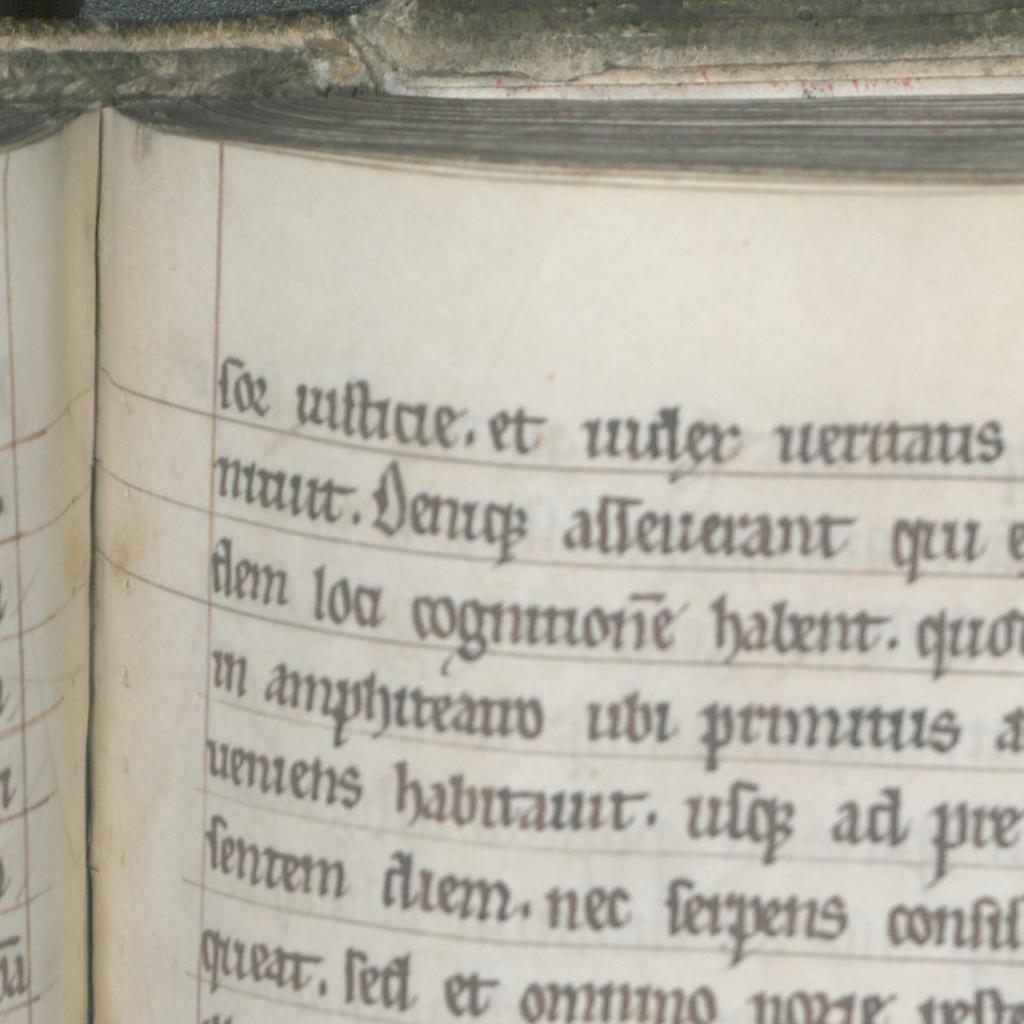 ſor iuſticie. et iudex ueritatis
nitauit. Deniqꝫ aſſeuerant qui e
dem loci cognitionē habent. quo
in amphiteatro ubi primitus a
ueniens habitauit. uſqꝫ ad pre
ſentem diem. nec ſerpens conſiſ
queat. ſed et omnino noxie